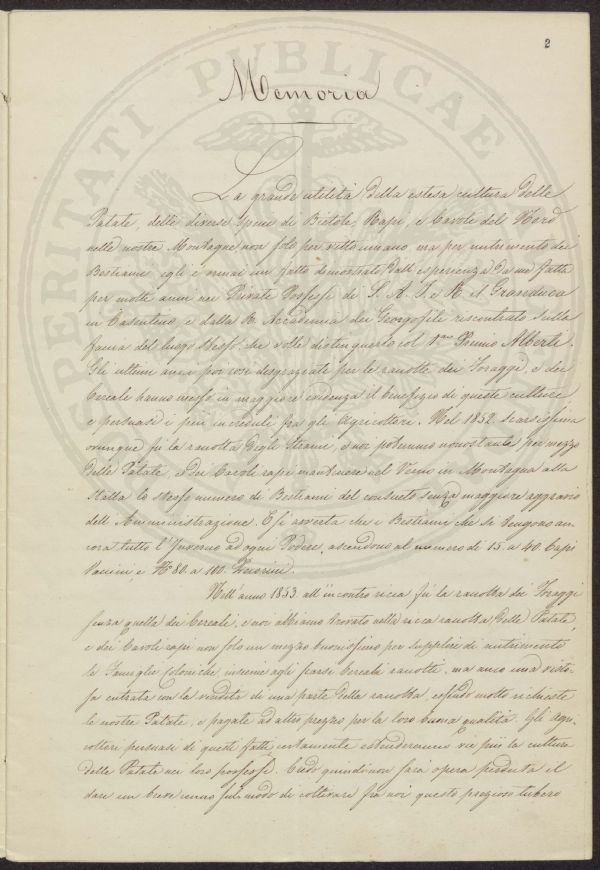 2
PROSPERITATI PUBLICAE
Memoria
La grande utilità della estesa cultura delle
Patate, delle diverse specie di Bietole, Rapi, e Cavoli del Nord
nelle nostre Montagne, non solo per vitto umano ma per nutrimento dei
Bestiami egli è ormai un fatto dimostrato dall'esperienza da me fatta
per molti anni nei Privati Possessi di S. A. I. e R. il Granduca
in Casentino, e dalla R. Accademia dei Georgofili riscontrato sulla
faccia del luogo stesso, che volle distinguerlo col 1mo Premio Alberti.
Gli ultimi anni poi così disgraziati per le raccolte dei Foraggi, e dei
Cereali hanno messo in maggiore evidenza il benefizio di queste culture
e persuasi i più increduli fra gli Agricoltori. Nel 1852. scarsissima
ovunque fù la raccolta degli Strami, e noi potemmo nonostante per mezzo
delle Patate, e dei Cavoli rapi mantenere nel Verno in Montagna alla
Stalla lo stesso numero di Bestiami del consueto senza maggiore aggravio
dell'Amministrazione. E si avverta che i Bestiami che si tengono an-
cora tutto l'Inverno ad ogni Podere, ascendono al numero di 15. a 40. Capi
Vaccini, e No 80. a 100. Pecorini.
Nell'anno 1853. all'incontro ricca fù la raccolta dei Foraggi
senza quella dei Cereali, e noi abbiamo trovato nella ricca raccolta delle Patate,
e dei Cavoli rapi non solo un mezzo buonissimo per supplire di nutrimento
le Famiglie coloniche, insieme agli scarsi Cereali raccolti, ma anco una visto-
sa entrata con la vendita di una parte della raccolta, essendo molto richieste
le nostre Patate, e pagate ad alto prezzo per la loro buona qualità. Gli Agri-
coltori persuasi di questi fatti certamente estenderanno vie più la cultura
della Patata nei loro possessi. Credo quindi non sarà opera perduta il
dare un breve cenno sul modo di coltivare fra noi questo prezioso tubero